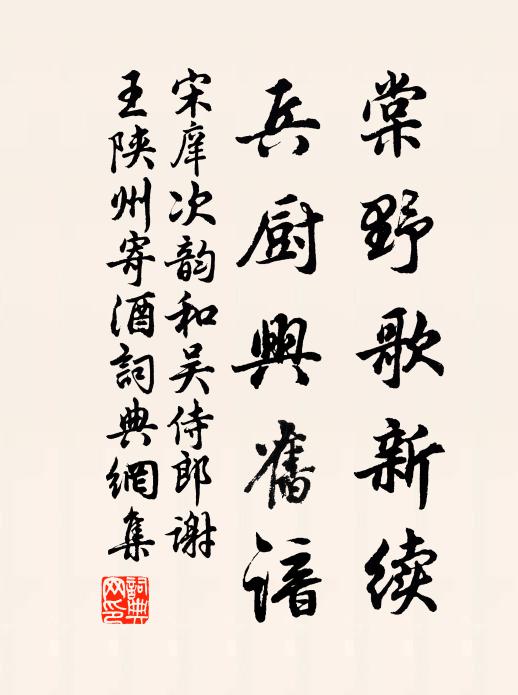 棠野歌新续
兵厨興舊谙
宋庠次韵和吴侍郎谢
王陕州寄酒詞典網集
詞典网印